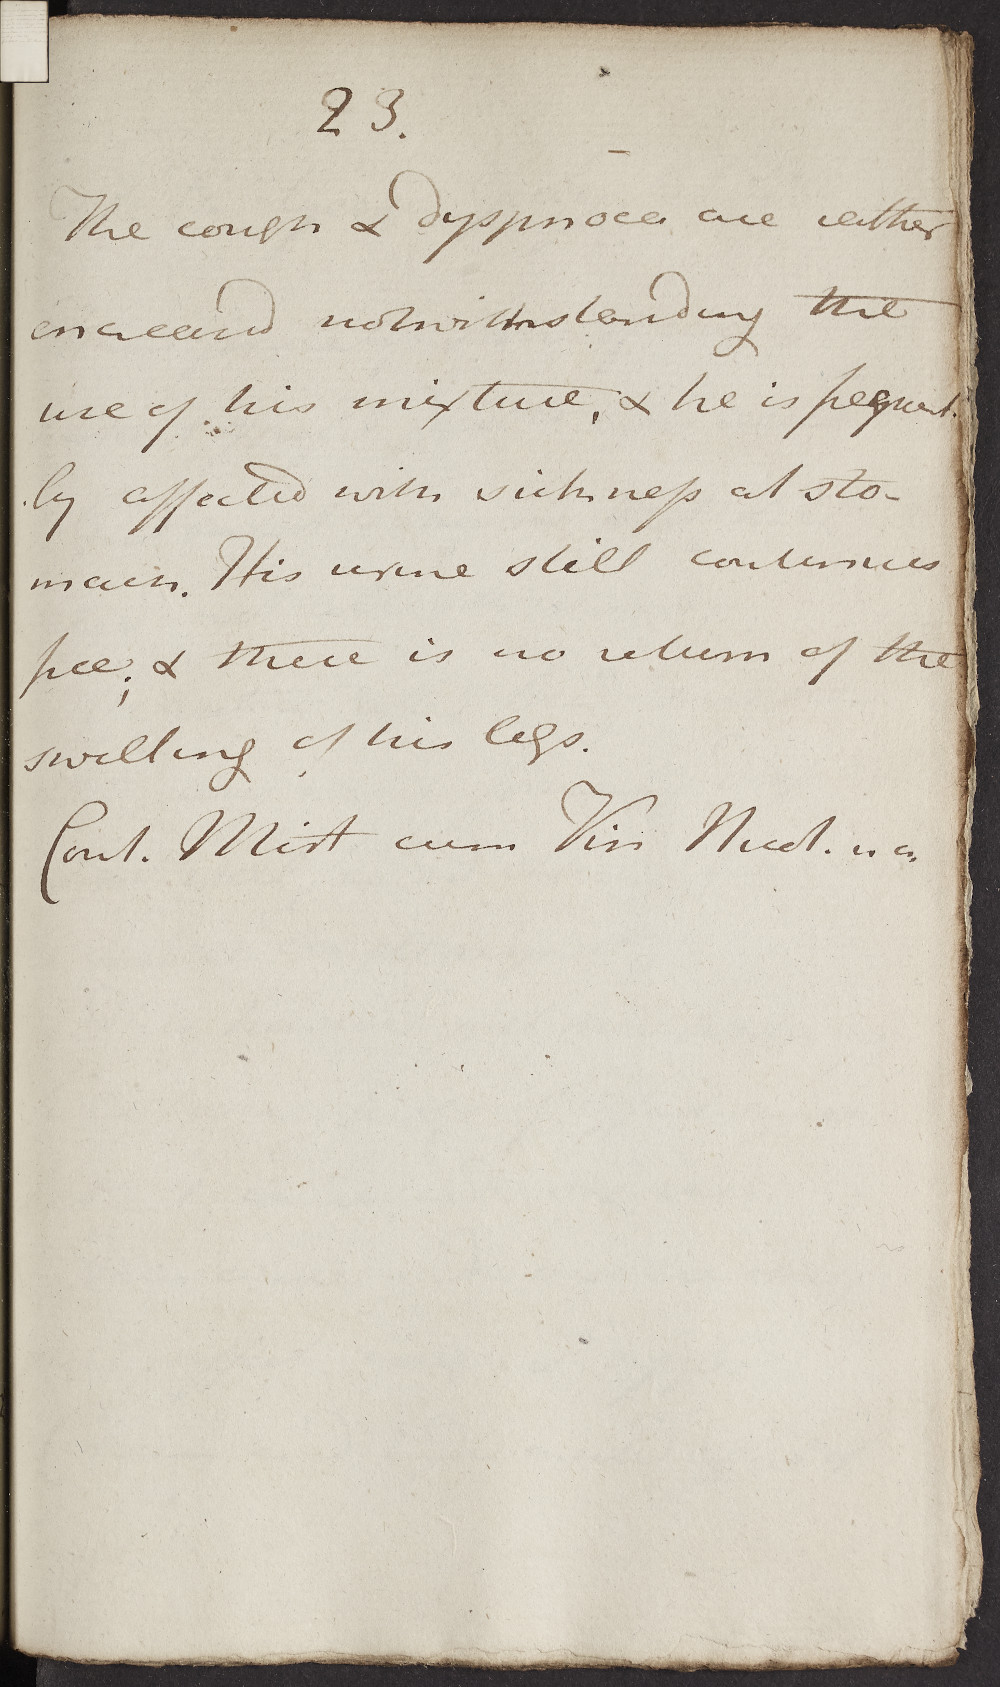 23.
The cough & Dyspnoea are rather
encreased notwithstanding the
use of his mixture, & he is frequent-
-ly affected with sickness at sto-
mach. His urine still continues
free; & there is no return of the
swelling of his legs.
Cont. Mist cum Vin